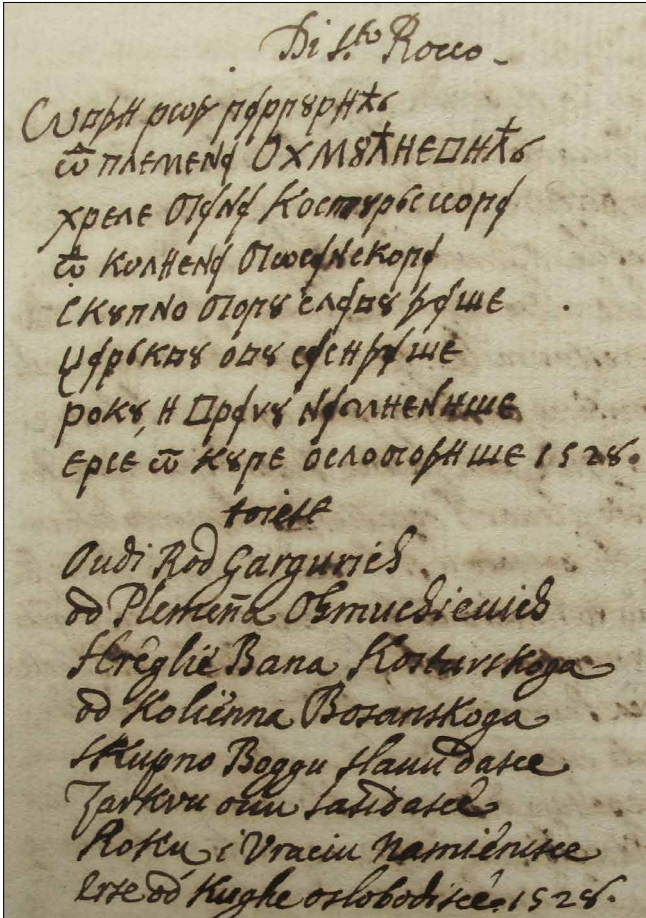 Di S.to Rocco
Овди род гаргꙋрићь
ѿ племена Охмꙋћиевићь
хреле бана Костꙋрьскога
ѿ колиена босанскога
скꙋпно богꙋ славꙋ даше
царьквꙋ овꙋ сасидаше
рокꙋ, и врачꙋ намиенише
ерсе ѿ кꙋге ослободише 1528.
toiest
Oudi Rod Gargurich
od Plemena Ohmuchieuich
Hreglië Bana Kosturskoga
od Koliënna Bosanskoga
skupno Boggu slauu dasce
Zarkvu ouu sasidasce
Roku, i Vraciu namiénisce
erse od Kughe oslobodisce. 1528.